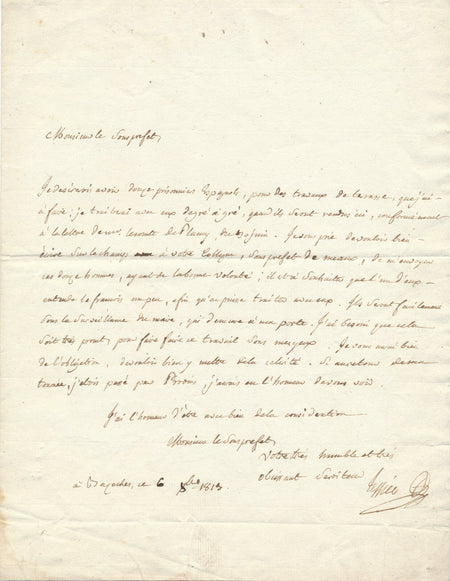 Monsieur le Sousprefet,
Je desirerois avoir douze prisonniers Espagnols, pour des travaux de terrasse, que j'ai
à faire; je traiterai avec eux de gré à gré, quand ils seront rendus ici, conformément
à la lettre de mr. le comte de Plancy du 20 juin. Je vous prie de vouloir bien
écrire sur le champ à votre Collegue, Sousprefet de meaux, de m'envoyer
ces douze hommes, ayant de la bonne volonté; il est à souhaiter que l'un d'eux
entende le francois un peu, afin qu'on puisse traiter avec eux. Ils seront facilement
sous la surveillance du maire, qui demeure à ma porte. J'ai besoin que cela
soit très promt, pour faire faire ce travail sous mes yeux. Je vous aurai bien
de l'obligation, de vouloir bien y mettre de la celerité. Si
tournée, j'etois passé par, j'aurois eu l'honneur de vous voir.
J'ai l'honneur d'être avec bien de la consideration
Monsieur le Sousprefet,
Votre très humble et très
obeissant Serviteur
à Bazoches, ce 6 8bre 1813. Tessier